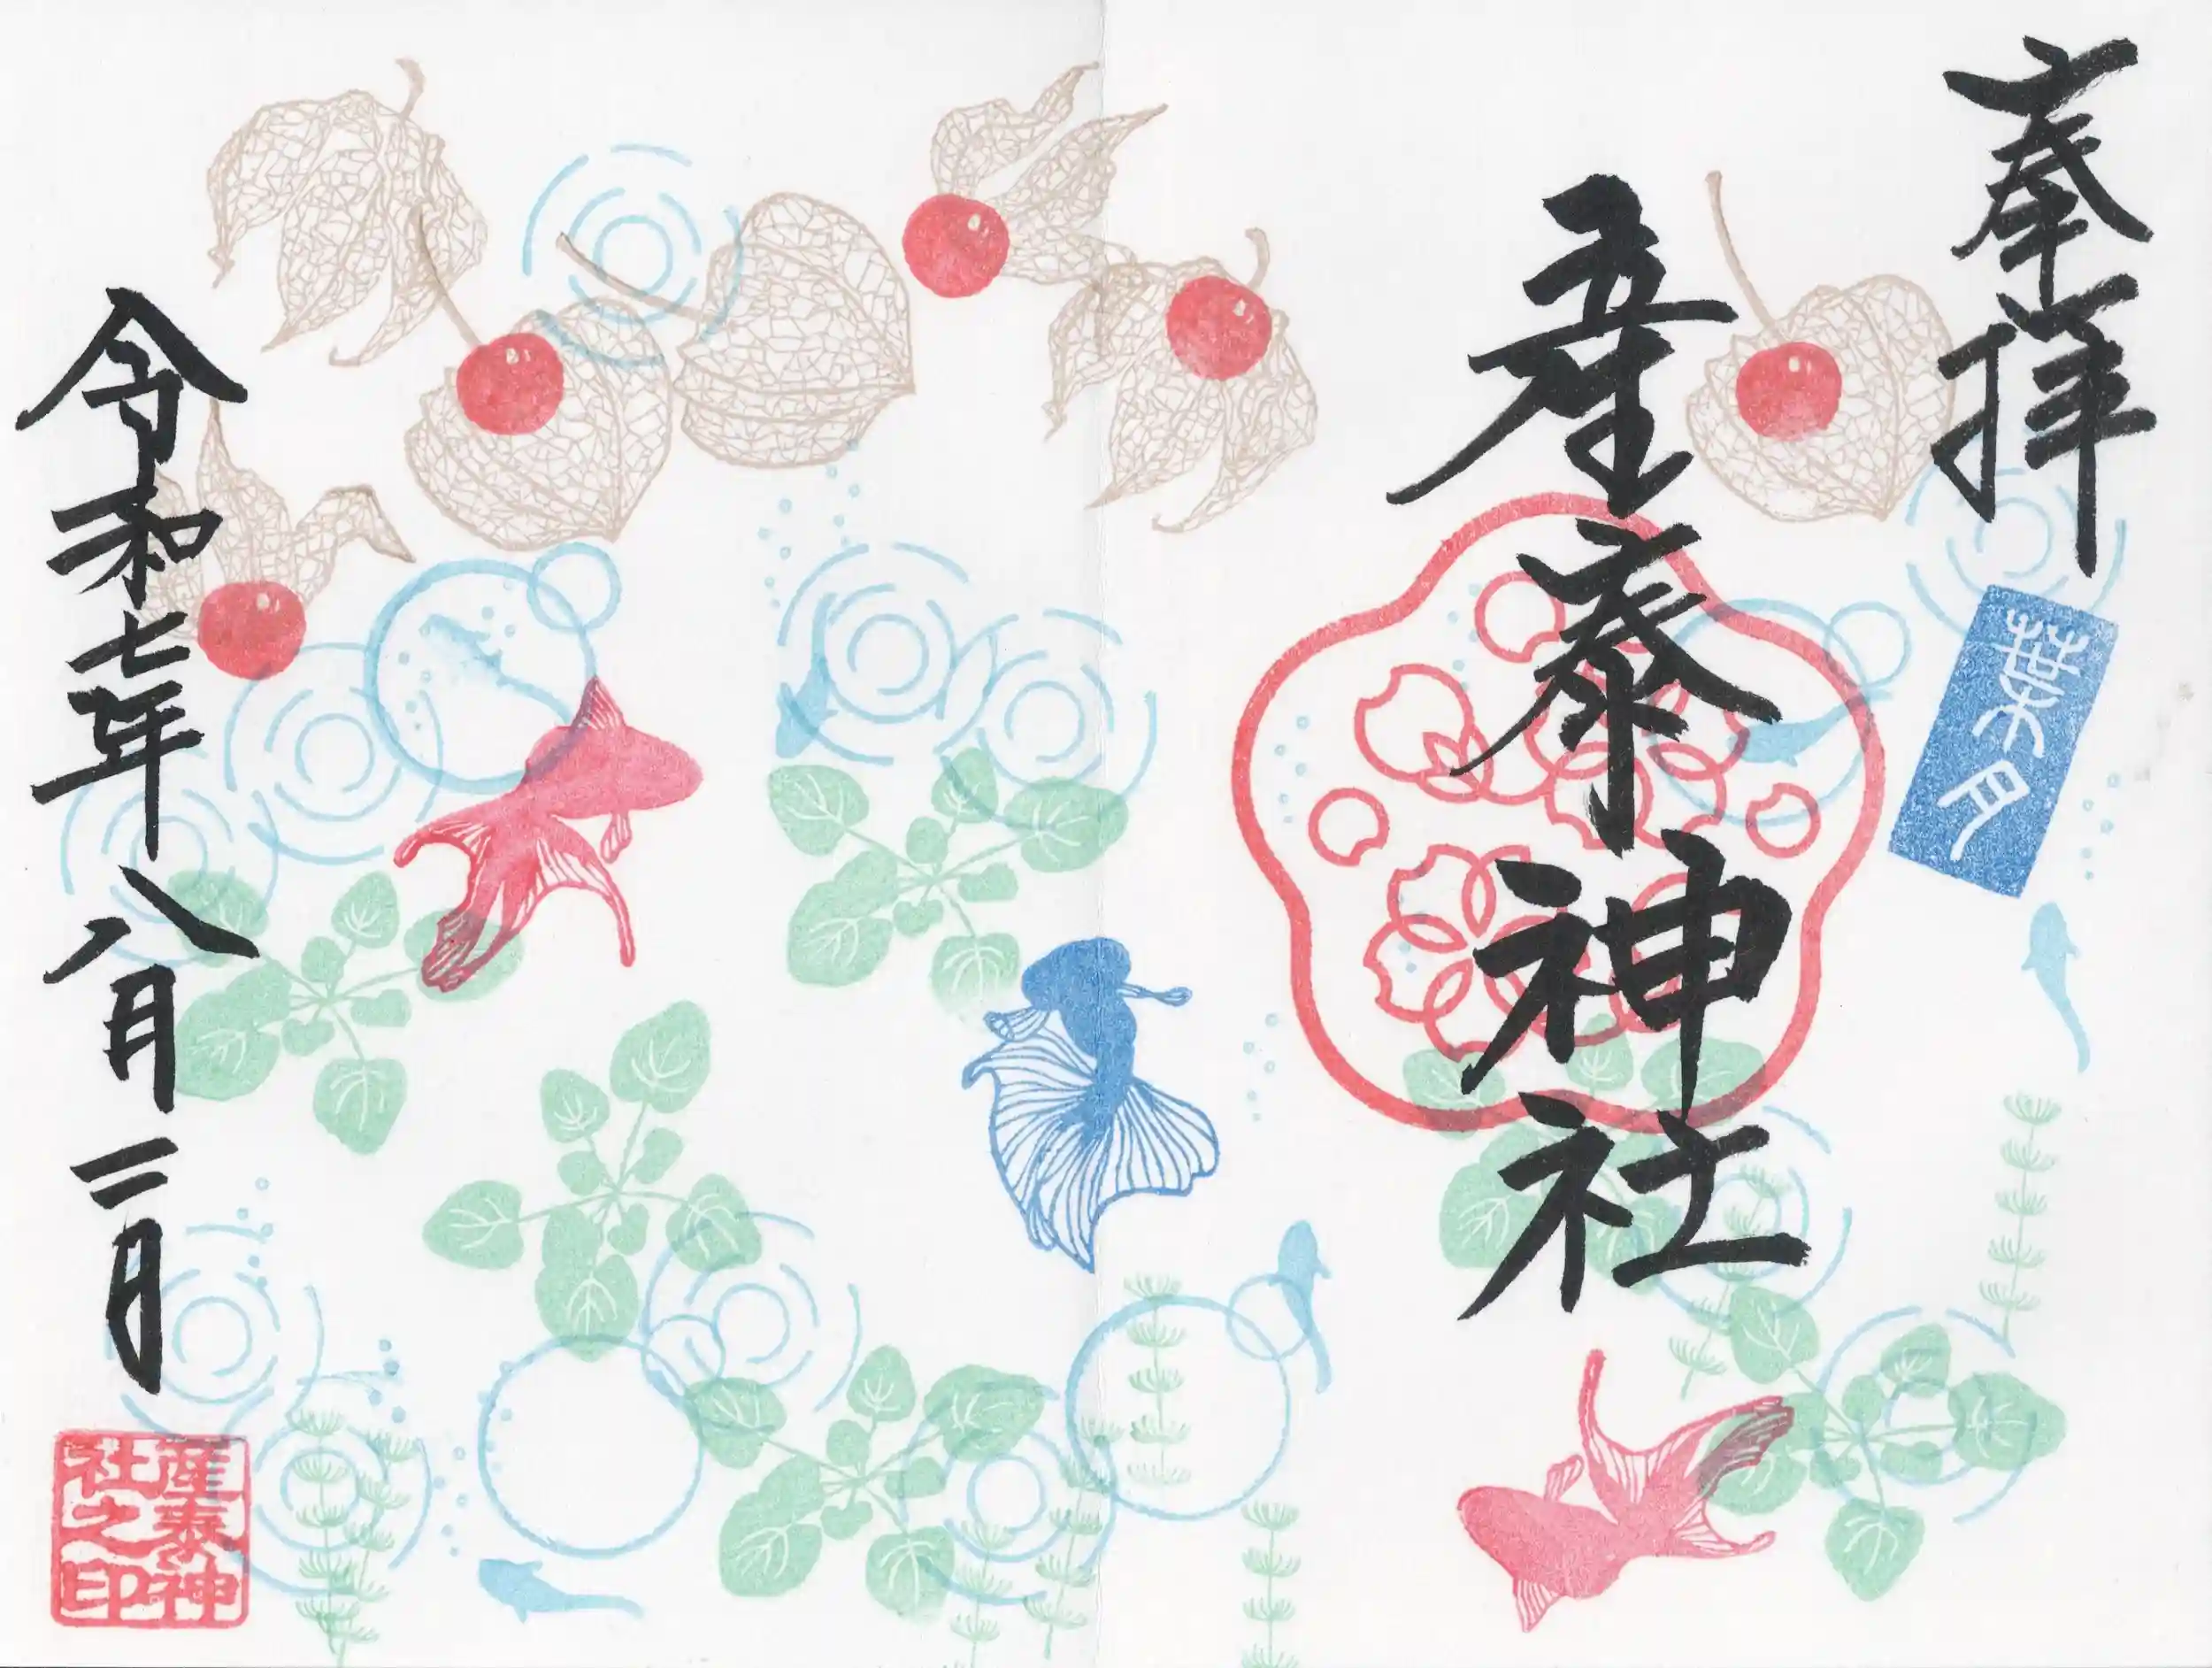 奉拝
葉月
産泰神社
令和七年八月二日
産泰神
社之印